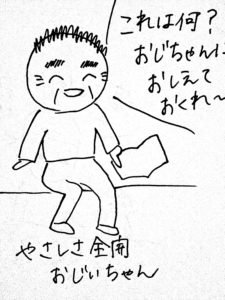 これは何？
おじちゃんに
おしえて
おくれ〜
やさしさ全開
おじいちゃん